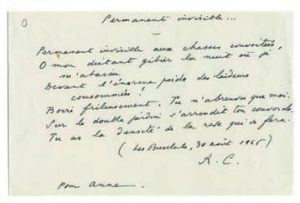 Permanent invisible...
Permanent invisible aux chasses convoitées,
O mon distant gibier la nuit où je
m'abaisse
Devant l'énorme poids des
consommés !
Boire frileusement. Tu n'abreuves que moi.
Sur le double jardin s'arrondit ton couvercle,
Tu as la densité de la rose qui se fera.
(Les Busclats, 30 août 1965)
R. C.
Pour Anne.